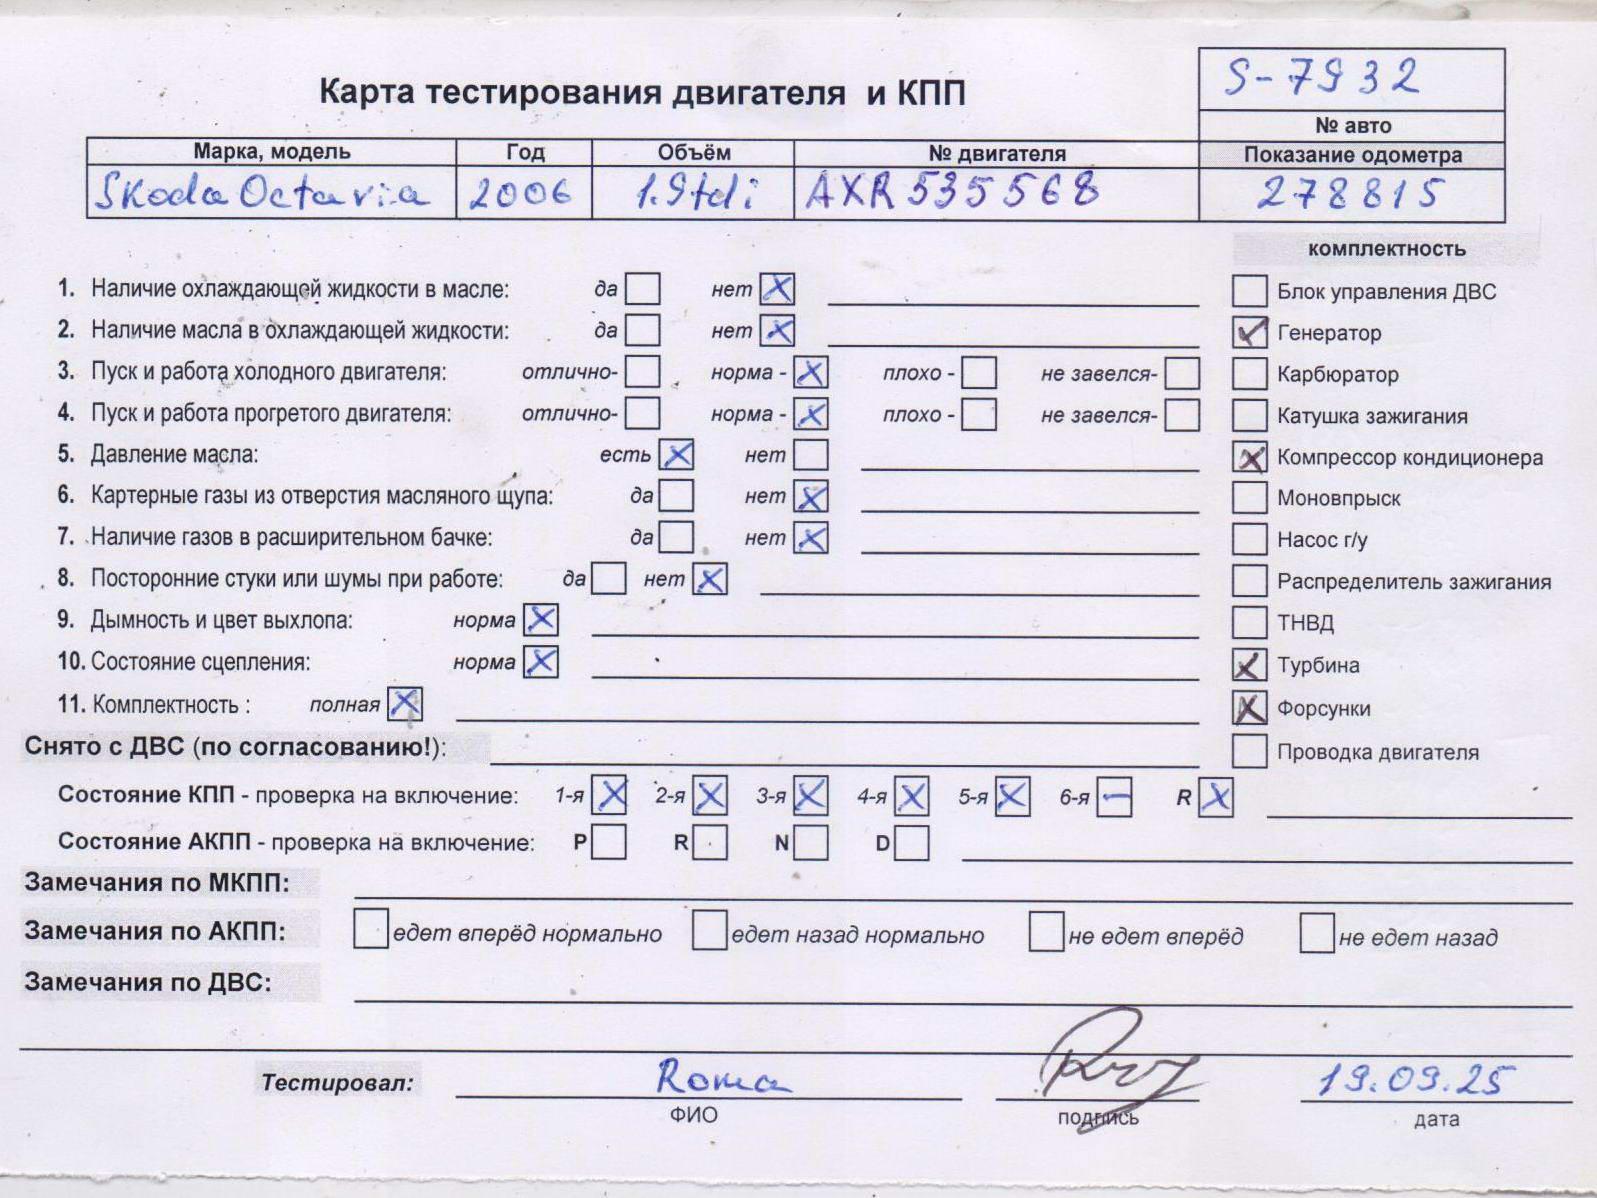 S-7932
Карта тестирования двигателя и КПП
№ авто
Марка, модель Год Объём № двигателя Показание одометра
Skoda Octavia 2006 1.9tdi AXR535568 278815
комплектность
1. Наличие охлаждающей жидкости в масле: да нет X Блок управления ДВС
2. Наличие масла в охлаждающей жидкости: да нет X ✓ Генератор
3. Пуск и работа холодного двигателя: отлично- норма - X плохо - не завелся- Карбюратор
4. Пуск и работа прогретого двигателя: отлично- норма - X плохо - не завелся- Катушка зажигания
5. Давление масла: есть X нет X Компрессор кондиционера
6. Картерные газы из отверстия масляного щупа: да нет X Моновпрыск
7. Наличие газов в расширительном бачке: да нет X Насос г/у
8. Посторонние стуки или шумы при работе: да нет X Распределитель зажигания
9. Дымность и цвет выхлопа: норма X ТНВД
10. Состояние сцепления: норма X X Турбина
11. Комплектность : полная X X Форсунки
Снято с ДВС (по согласованию!): Проводка двигателя
Состояние КПП - проверка на включение: 1-я X 2-я X 3-я X 4-я X 5-я X 6-я — R X
Состояние АКПП - проверка на включение: P R N D
Замечания по МКПП:
Замечания по АКПП: едет вперёд нормально едет назад нормально не едет вперёд не едет назад
Замечания по ДВС:
Тестировал: Roma 19.09.25
ФИО подпись дата